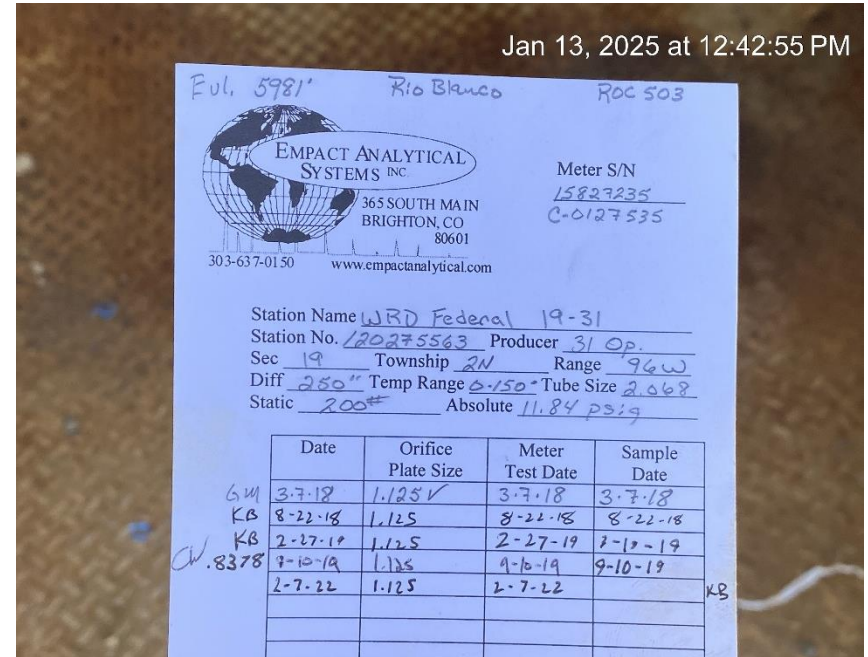 Jan 13, 2025 at 12:42:55 PM
Eul. 5981' Rio Blanco ROC 503
EMPACT ANALYTICAL
SYSTEMS INC
365 SOUTH MAIN
BRIGHTON, CO
80601
303-637-0150 www.empactanalytical.com
Meter S/N
15827235
C-0127535
Station Name WRD Federal 19-31
Station No. 120275563 Producer 31 Op.
Sec 19 Township 2N Range 96W
Diff 250" Temp Range 0-150° Tube Size 2.068
Static 200# Absolute 11.84 psig
Date Orifice Plate Size Meter Test Date Sample Date
GM 3.7.18 1.125✓ 3.7.18 3.7.18
KB 8-22-18 1.125 8-22-18 8-22-18
KB 2-27-19 1.125 2-27-19
CW .8378 9-10-19 1.125 9-10-19 9-10-19
2-7-22 1.125 2-7-22 KB